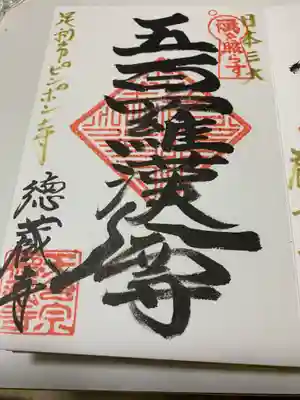 日本三大
隅を照らす
五百羅漢尊
足利市ピンポン寺
徳蔵寺